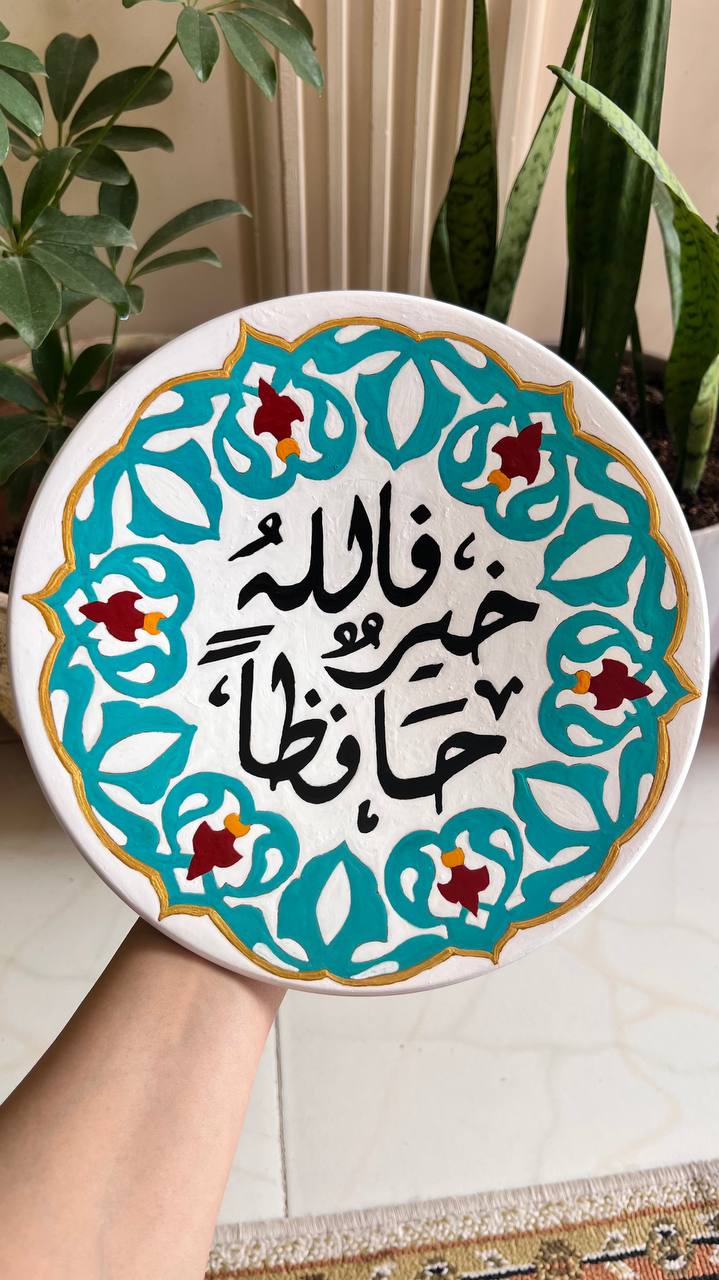 فاللهُ
خيرٌ
حافظاً